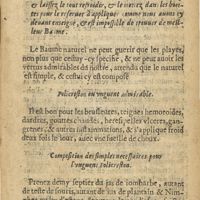 & laissez le tout refroidir, & le mettez dans les boet-
tes pour le reserver & appliquer comme nous auons cy
deuant enseigné, & est impossible de trouuer de meil-
leur Baume.
Le Baume naturel ne peut guerir que les playes,
non plus que cestuy-cy specifié, & ne peut auoir les
vertus admirables du nostre, attendu que le naturel
est simple, & celui cy est composé
Policreston ou vnguent admirable.
Il est bon pour les brusleures, teignes hemoroides,
dardres, gouttes chaudes, heresipelles vlceres, gan-
grenes, & autres inflammations, & s'applique froid
deux fois le iour, auec vne feuille double.
Composition des simples necessaires pour
l'onguent Policreston.
Prenez demy septite du jus de iombarbe, autant
de teste de souris, autant de jus de plantain & Nim-